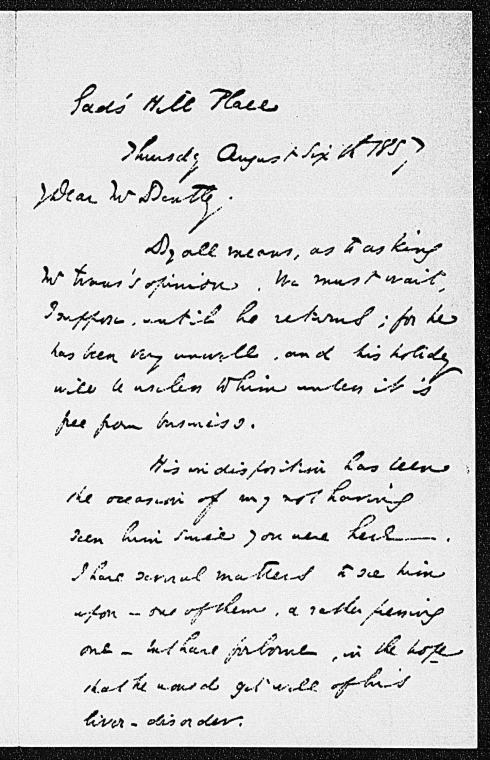 Gad's Hill Place
Thursday August Sixth 1857
My Dear Mr
By all means, as to asking
Mr opinion. We must wait,
I suppose, until he returns; for he
has been very unwell, and his holiday
will be useless to him unless it is
free from business.
His indisposition has been
the occasion of my not having
seen him since you were here.
I have several matters to see him
upon – one of them, a rather pressing
one – but have forborne, in the hope
that he would get well of his
liver-disorder.